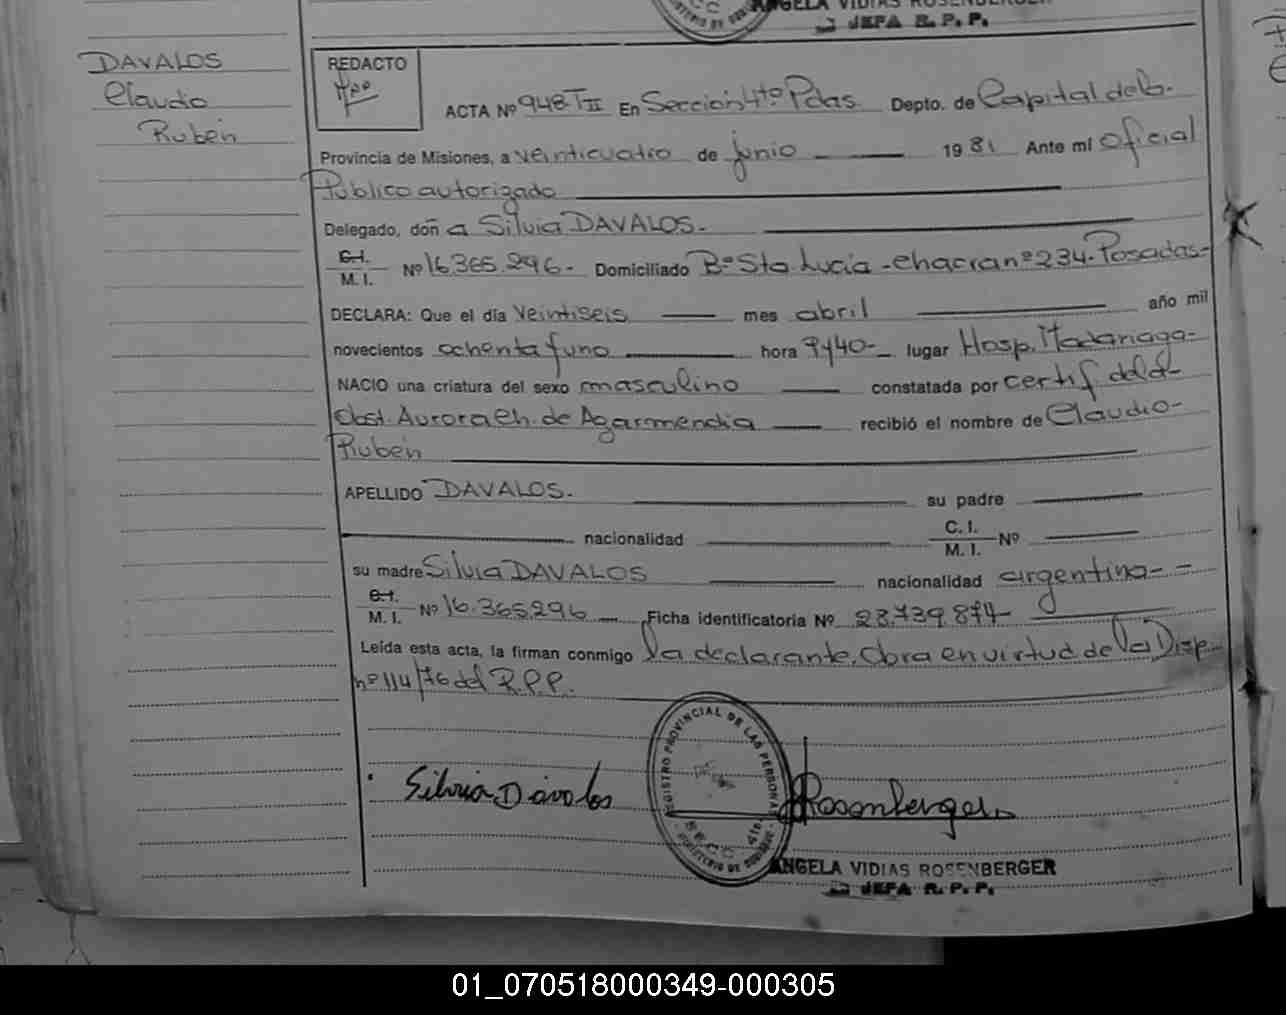 ANGELA VIDIAS ROSENBERGER
JEFA R. P. P.
DAVALOS
Claudio
Ruben
REDACTO
ACTA Nº 948-TII En Sección 4tº Pdas. Depto. de Capital de la
Provincia de Misiones, a veinticuatro de junio 1981 Ante mí Oficial
Público autorizado
Delegado, doña Silvia DAVALOS.
C.I.
M. I. Nº 16.365.296- Domiciliado Bº Sta. Lucía - chacra nº 234- Posadas-
DECLARA: Que el día veintiseis mes abril año mil
novecientos ochenta y uno hora 9y40- lugar Hosp. Madariaga-
NACIO una criatura del sexo masculino constatada por certif. de la
Obst. Aurora Ch. de Agarmendia recibió el nombre de Claudio-
Ruben
APELLIDO DAVALOS. su padre
nacionalidad C. I.
M. I. Nº
su madre Silvia DAVALOS nacionalidad argentina--
C.I.
M. I. Nº 16.365.296 Ficha identificatoria Nº 28.739.874-
Leída esta acta, la firman conmigo la declarante. Obra en virtud de la Disp.
nº 114/76 del R.P.P.
REGISTRO PROVINCIAL DE LAS PERSONAS
SECC 4ta
MINISTERIO DE GOBIERNO
Silvia Dávalos
Rosenberger
ANGELA VIDIAS ROSENBERGER
JEFA R. P. P.
01_070518000349-000305